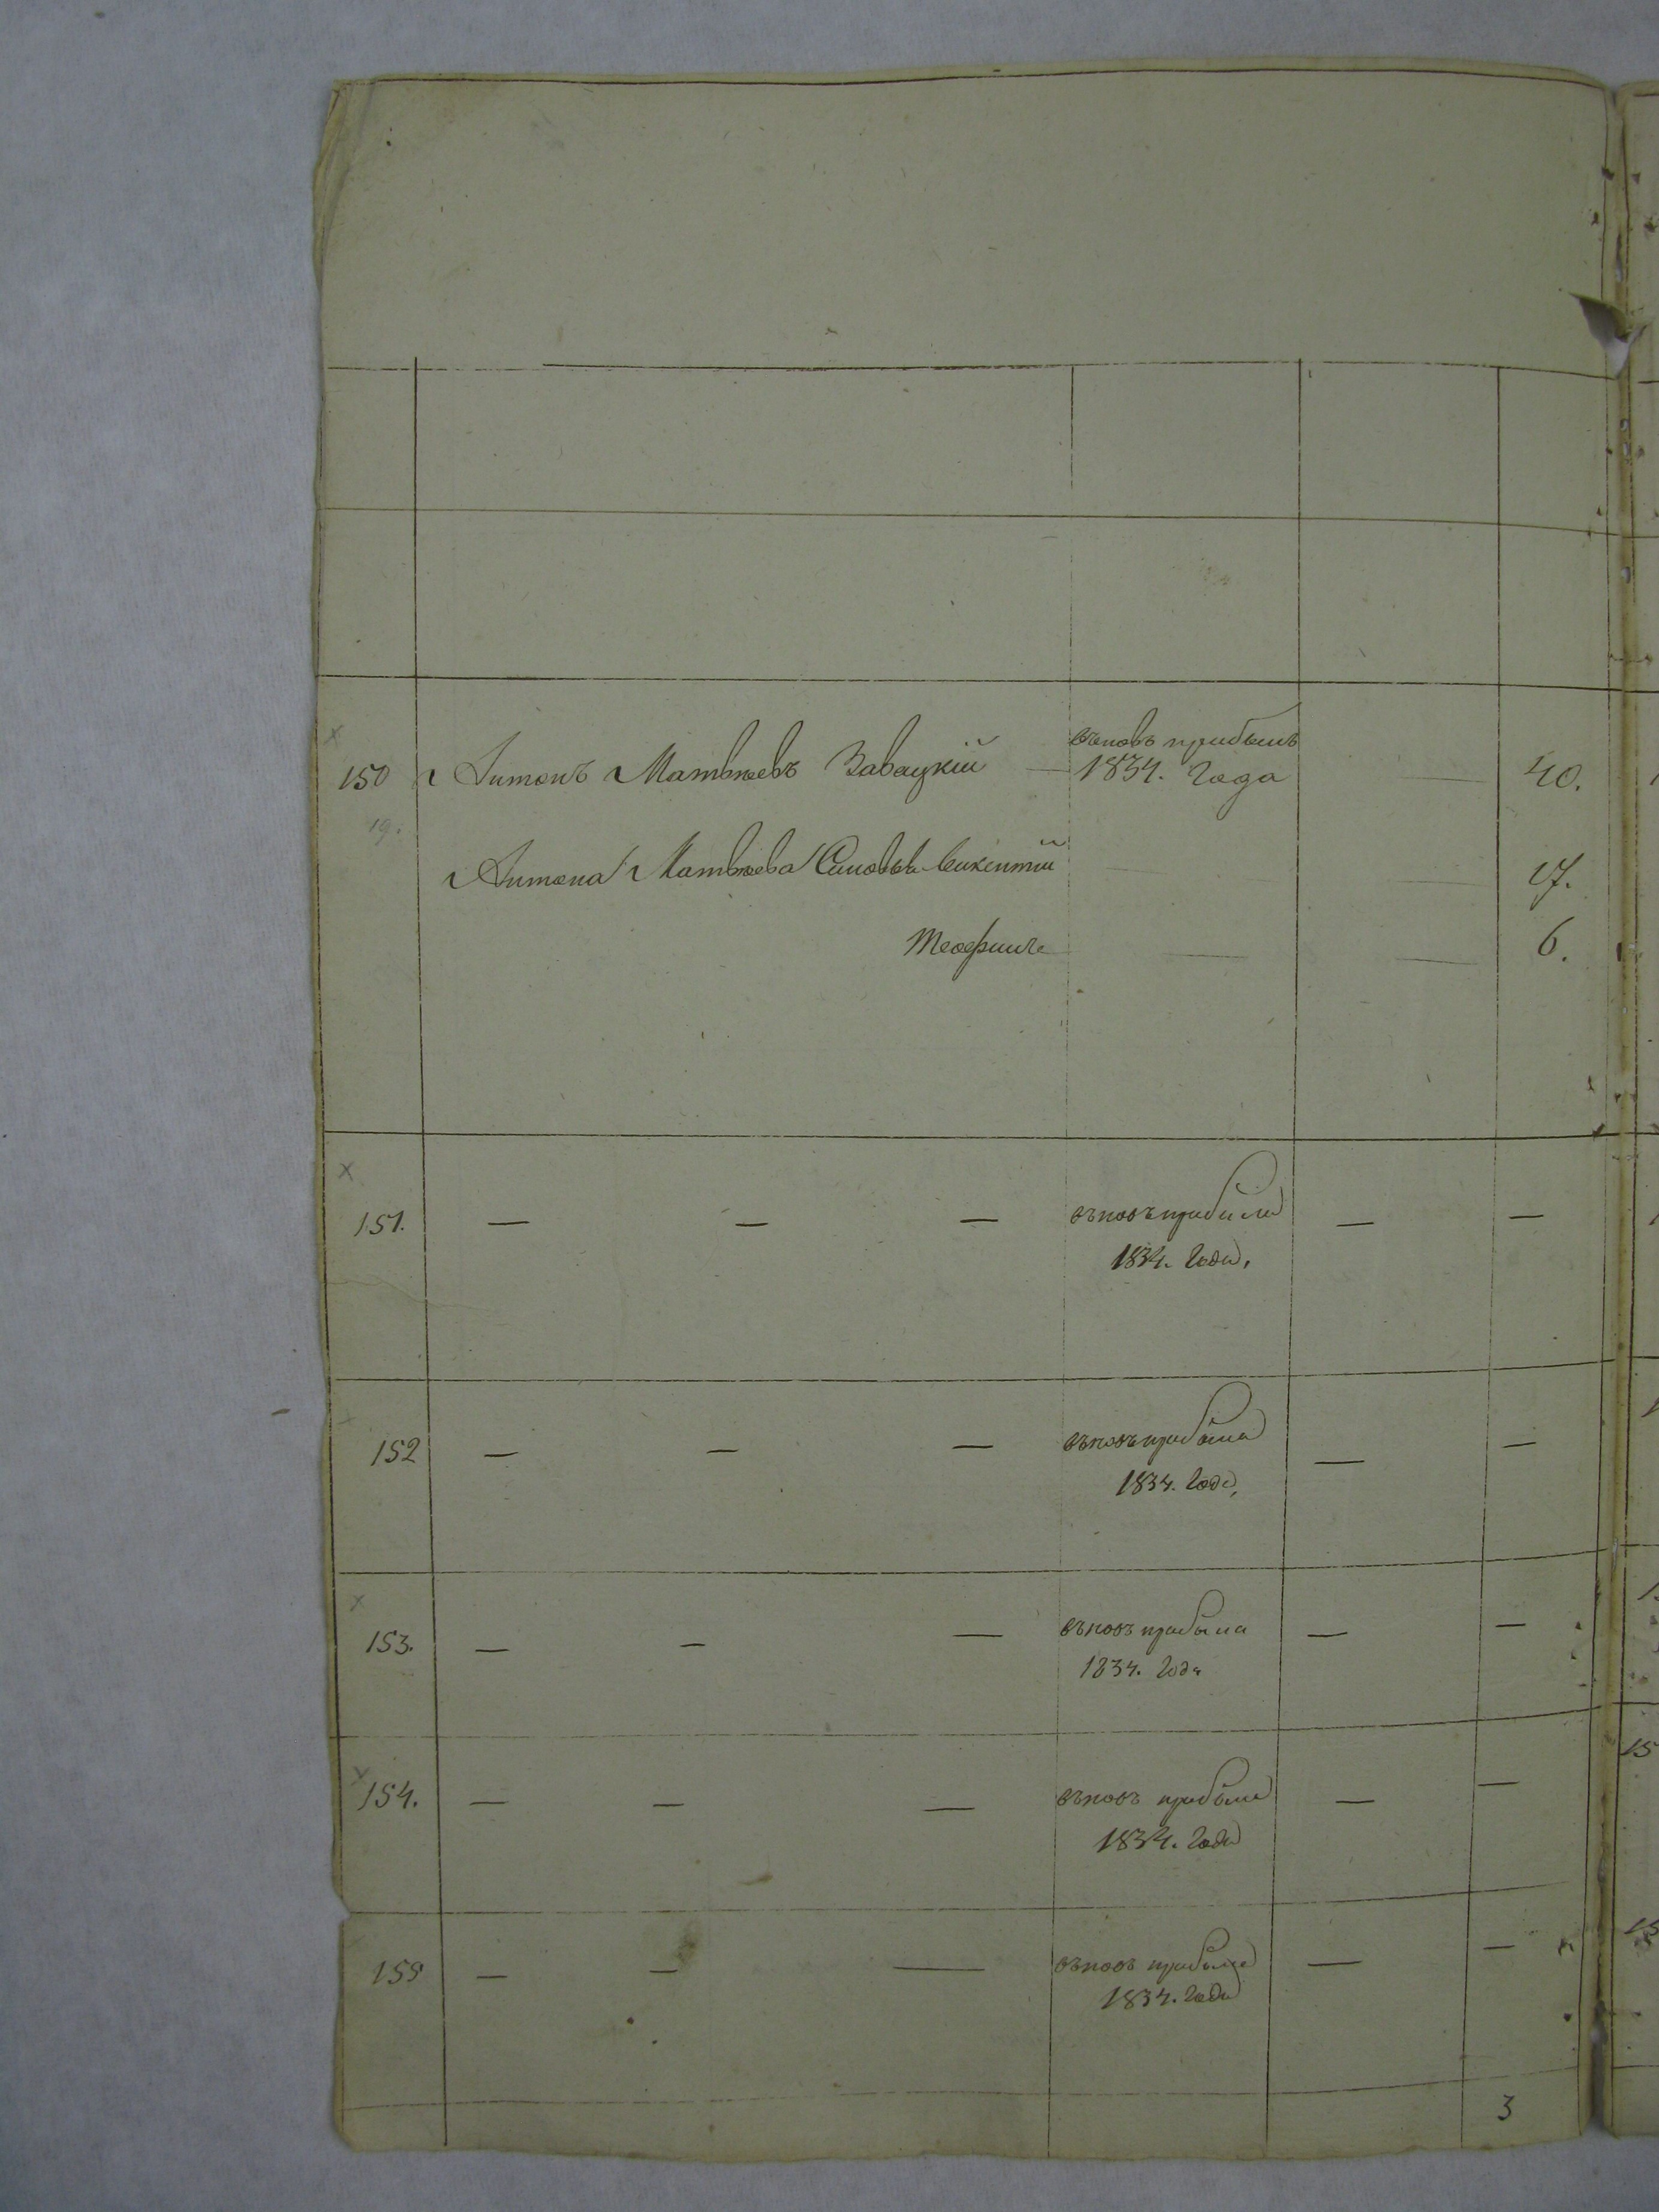 150 Антонъ Матвѣевъ Завацкій — вновь прибылъ
1834. года — 40.
19.
Антона Матвѣева Сыновья Викентій — — 17.
Теофилъ — — 6.
151. — — — вновь прибыла — —
1834. года.
152 — — — вновь прибыла — —
1834. года.
153. — — — вновь прибыла — —
1834. года
154. — — — вновь прибыла — —
1834. года
155 — — — вновь прибыла — —
1834. года
3
15